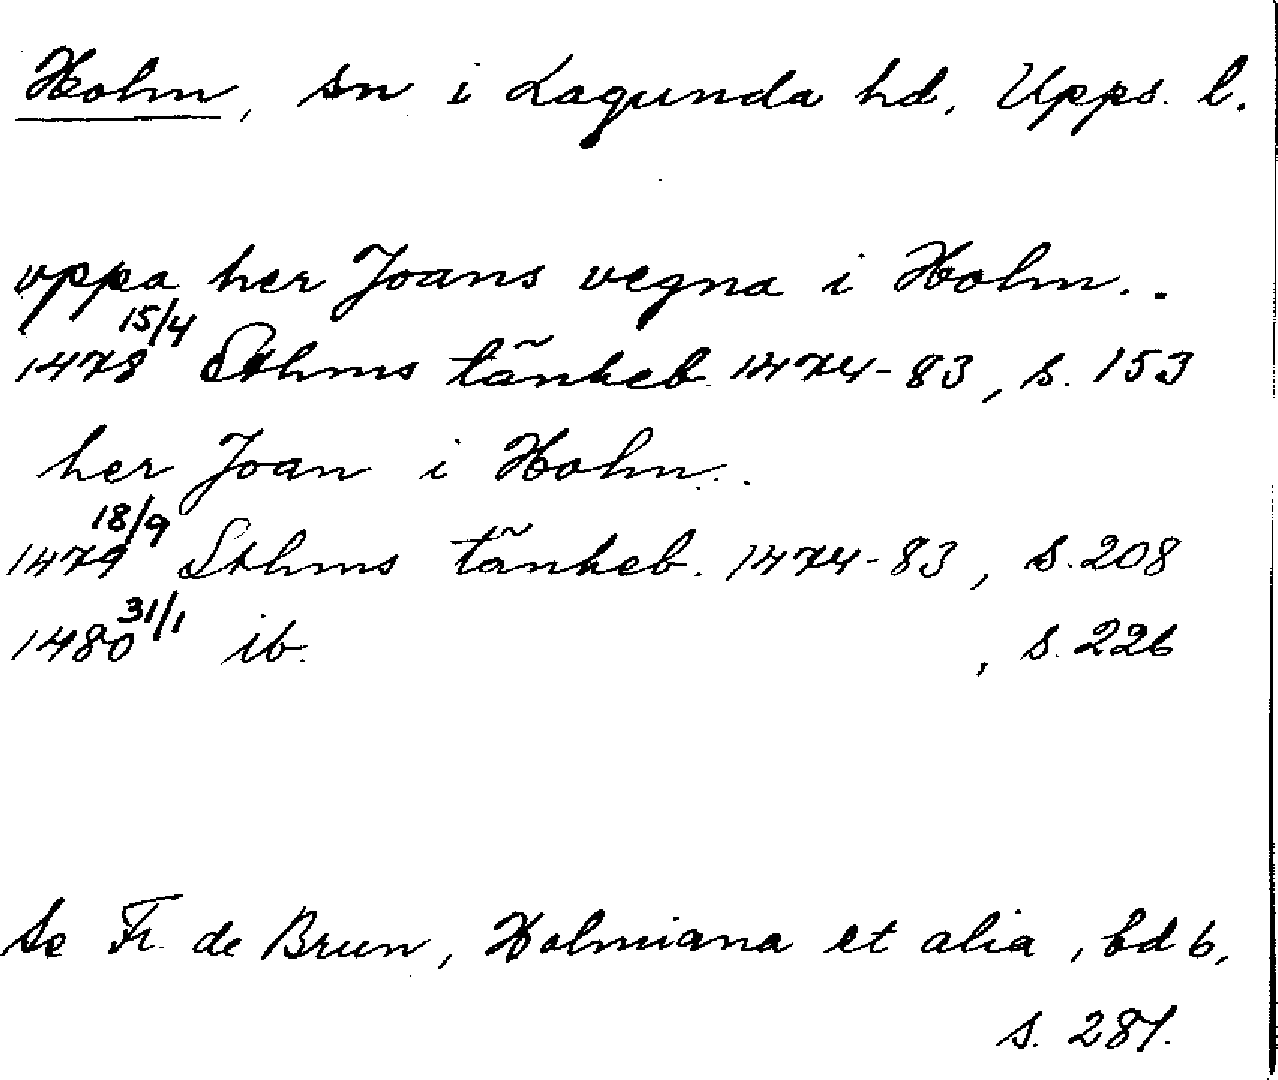 Holm, sn i Lagunda hd, Upps. l.
vppa her Joans vegna i Holm..
1478 15/4 Sthms tänkeb. 1474-83, s. 153
her Joan i Holm..
1479 18/9 Sthms tänkeb. 1474-83, s. 208
1480 31/1 ib. , s. 226
Se Fr. de Brun, Holmiana et alia, bd 6,
s. 281.